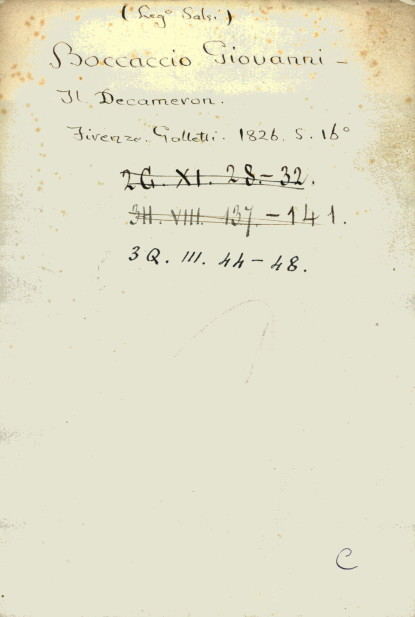 (Leg° Salsi)
Boccaccio Giovanni –
Il Decameron.
Firenze. Galletti. 1826. 5. 16°
2G. XI. 28.– 32.
3H. VIII. 137. – 141.
3Q. III. 44 – 48.
C